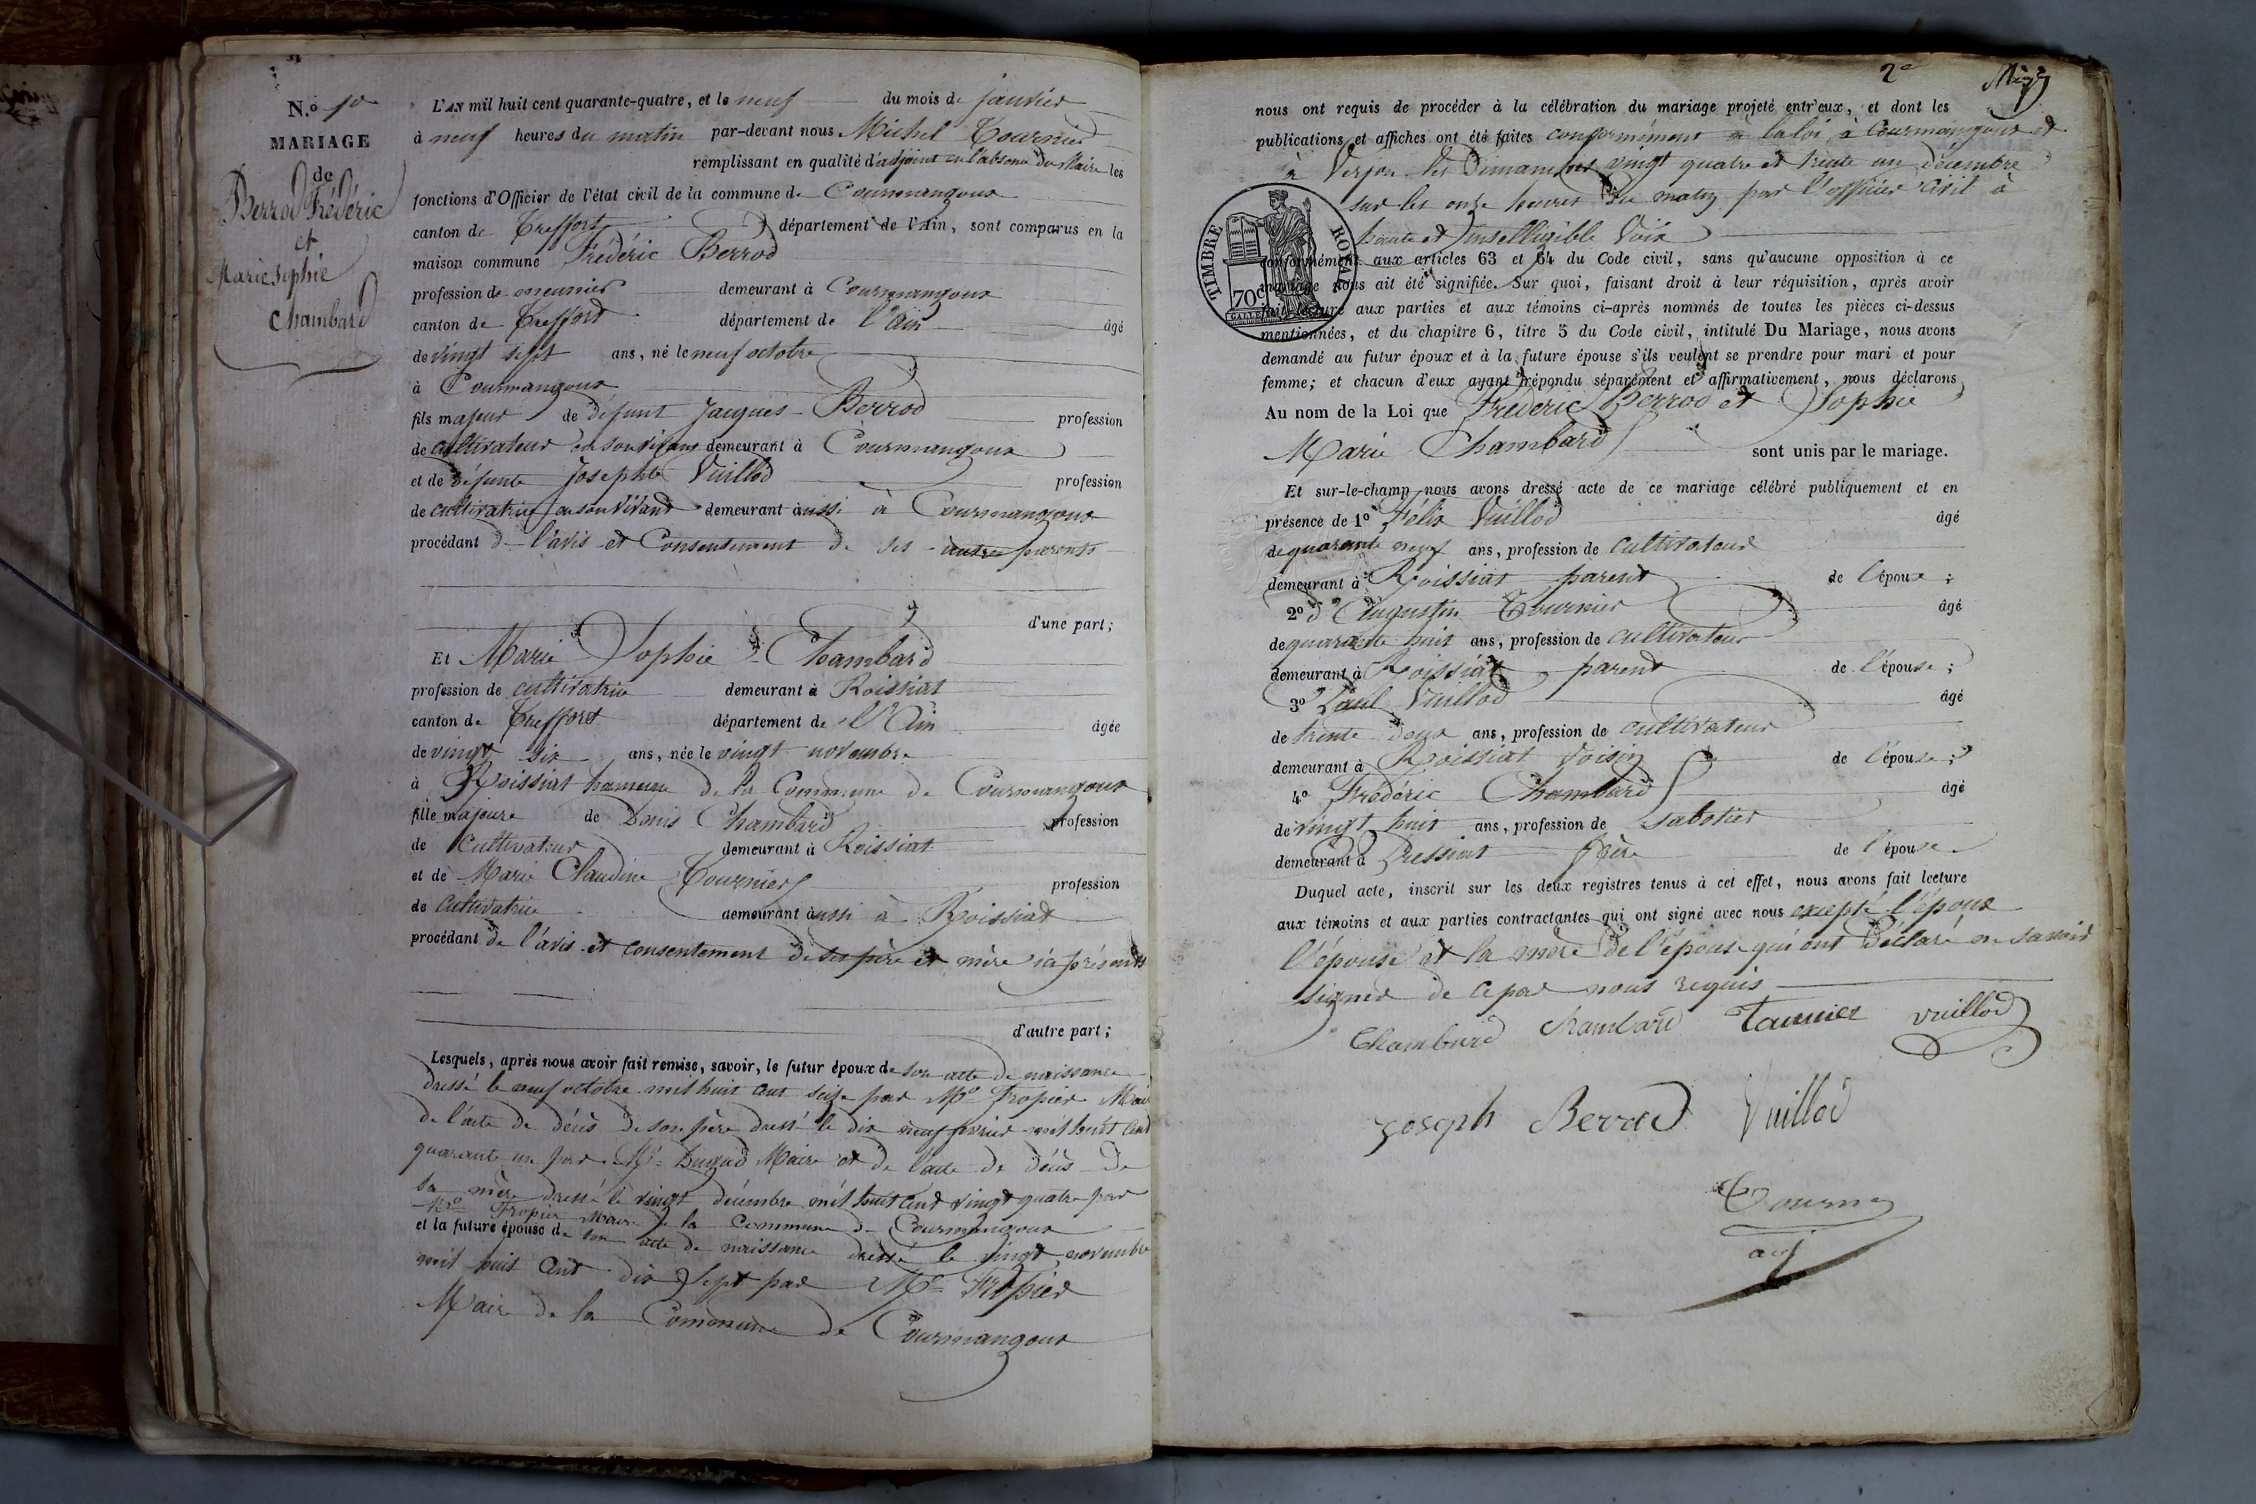 N.º 1er
MARIAGE
de
Berrod Frédéric
et
Marie Sophie
Chambard
L'AN mil huit cent quarante-quatre, et le neuf du mois de janvier
à neuf heures du matin par-devant nous Michel Tournier
remplissant en qualité d'adjoint en l'absence du Maire les
fonctions d'Officier de l'état civil de la commune de Courmangoux
canton de Treffort département de l'Ain, sont comparus en la
maison commune Frédéric Berrod
profession de meunier demeurant à Courmangoux
canton de Treffort département de l'Ain âgé
de vingt sept ans, né le neuf octobre
à Courmangoux
fils majeur de défunt Jacques Berrod profession
de cultivateur en son vivant demeurant à Courmangoux
et de défunte Josephte Vuillod profession
de cultivatrice en son vivant demeurant aussi à Courmangoux
procédant de l'avis et Consentement de ses autres parents
d'une part;
Et Marie Sophie Chambard
profession de cultivatrice demeurant à Roissiat
canton de Treffort département de l'Ain âgée
de vingt six ans, née le vingt novembre
à Roissiat hameau de la Commune de Courmangoux
fille majeure de Denis Chambard profession
de Cultivateur demeurant à Roissiat
et de Marie Claudine Tournier profession
de Cultivatrice demeurant aussi à Roissiat
procédant de l'avis et consentement de ses père et mère ici présents
d'autre part;
Lesquels, après nous avoir fait remise, savoir, le futur époux de son acte de naissance
dressé le neuf octobre mil huit cent seize par Mr Tropier Maire
de l'acte de décès de son père dressé le dix neuf février mil huit cent
quarante un par Mr Maire et de l'acte de décès de
sa mère dressé le vingt décembre mil huit cent vingt quatre par
Mr Tropier Maire de la Commune de Courmangoux
et la future épouse de son acte de naissance dressé le vingt novembre
mil huit cent dix sept par Mr Tropier
Maire de la Commune de Courmangoux
2e
nous ont requis de procéder à la célébration du mariage projeté entr'eux, et dont les
publications et affiches ont été faites conformément à la loi, à Courmangoux et
à Verjon les Dimanches vingt quatre et trente un décembre
sur les onze heures du matin par l'officier civil à
haute et intelligible Voix
TIMBRE ROYAL
70c
conformément aux articles 63 et 64 du Code civil, sans qu'aucune opposition à ce
mariage nous ait été signifiée. Sur quoi, faisant droit à leur réquisition, après avoir
fait lecture aux parties et aux témoins ci-après nommés de toutes les pièces ci-dessus
mentionnées, et du chapitre 6, titre 5 du Code civil, intitulé Du Mariage, nous avons
demandé au futur époux et à la future épouse s'ils veulent se prendre pour mari et pour
femme; et chacun d'eux ayant répondu séparément et affirmativement, nous déclarons
Au nom de la Loi que Frédéric Berrod et Sophie
Marie Chambard sont unis par le mariage.
Et sur-le-champ nous avons dressé acte de ce mariage célébré publiquement et en
présence de 1º Félix Vuillod âgé
de quarante neuf ans, profession de cultivateur
demeurant à Roissiat parent de l'époux;
2º d'Augustin Tournier âgé
de quarante huit ans, profession de cultivateur
demeurant à Roissiat parent de l'épouse;
3º Paul Vuillod âgé
de trente deux ans, profession de cultivateur
demeurant à Roissiat voisin de l'épouse;
4º Frédéric Chambard âgé
de vingt huit ans, profession de sabotier
demeurant à Pressiat frère de l'épouse
Duquel acte, inscrit sur les deux registres tenus à cet effet, nous avons fait lecture
aux témoins et aux parties contractantes qui ont signé avec nous excepté l'époux
l'épouse et la mère de l'épouse qui ont déclaré ne savoir
signer de ce par nous requis
Chambard Chambard Tournier Vuillod
Joseph Berrod Vuillod
Tournier
adj